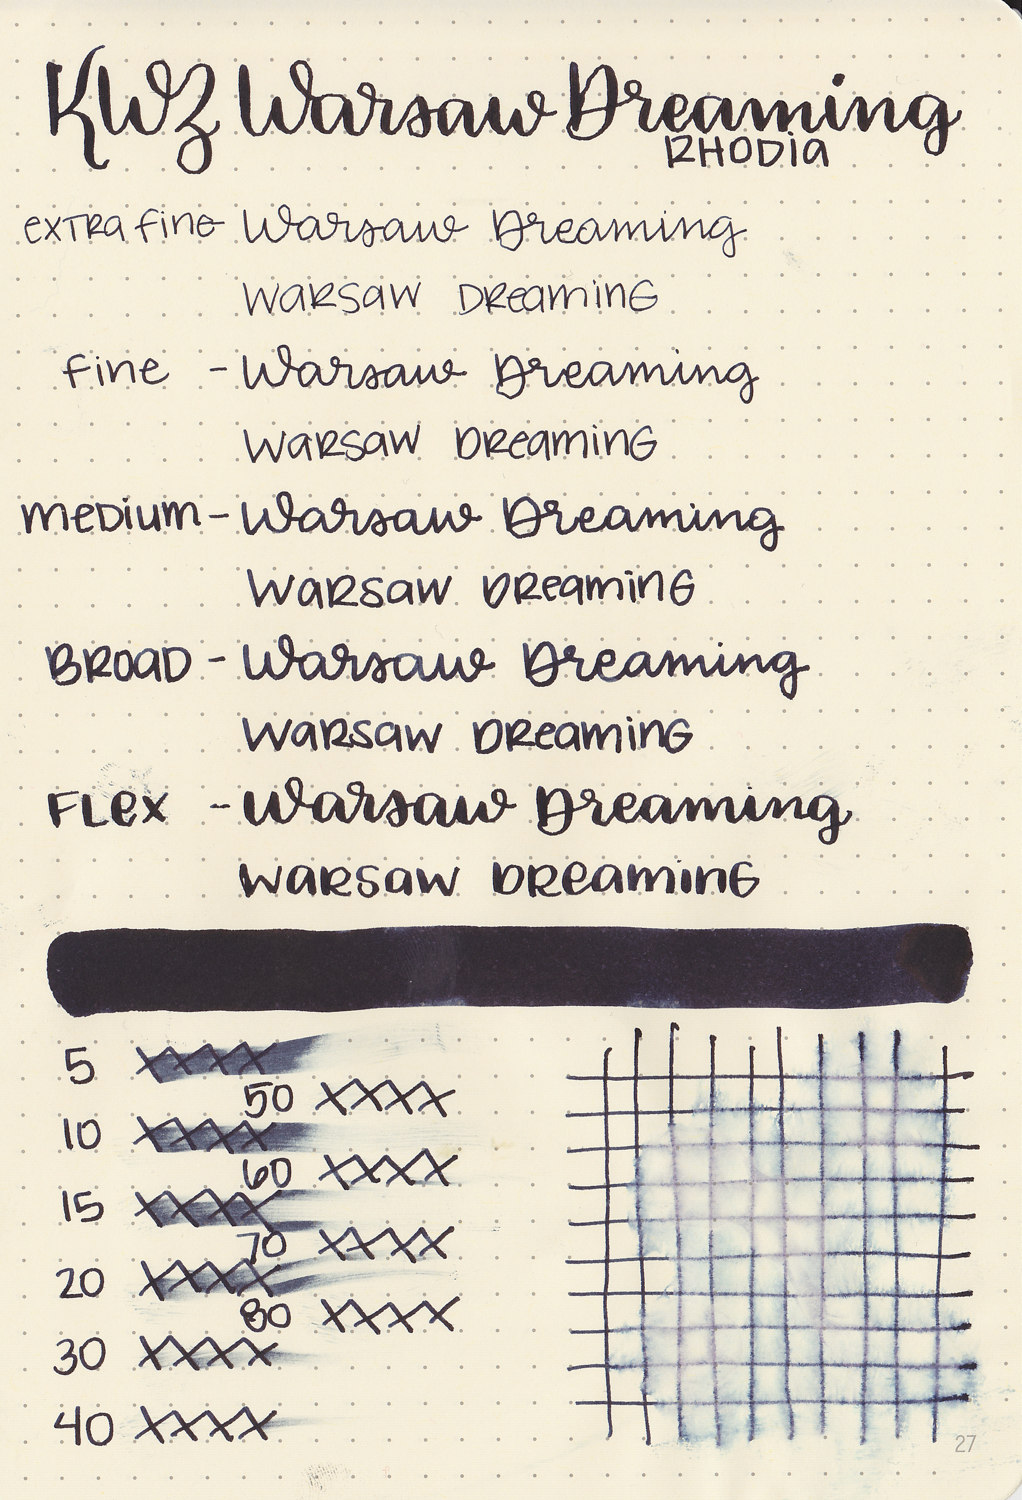 KWZ Warsaw Dreaming
RHODIA
extra fine - Warsaw Dreaming
Warsaw Dreaming
fine - Warsaw Dreaming
Warsaw Dreaming
medium - Warsaw Dreaming
Warsaw Dreaming
Broad - Warsaw Dreaming
Warsaw Dreaming
Flex - Warsaw Dreaming
Warsaw Dreaming
5 XXXX
50 XXXX
10 XXXX
60 XXXX
15 XXXX
70 XXXX
20 XXXX
80 XXXX
30 XXXX
40 XXXX
27